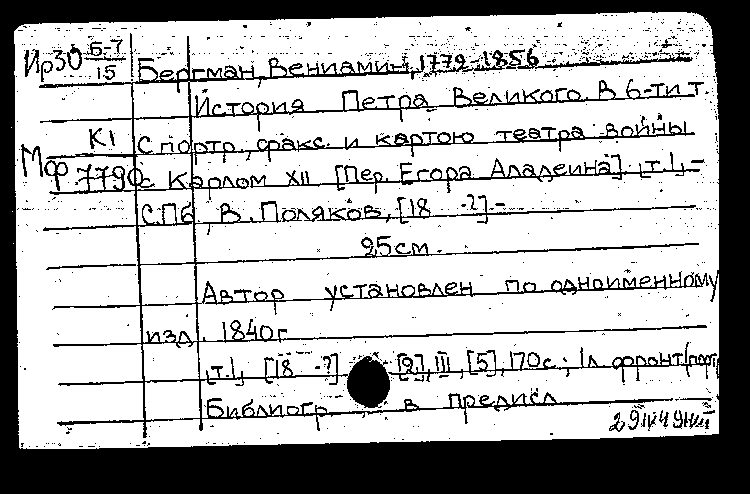 Ир30 6-7/15
Бергман, Вениамин, 1779-1856
История Петра Великого. В 6-ти т.
К1
С портр., факс. и картою театра войны
Мф 7790
с Карлом XII [Пер. Егора Аладеина]. т.1, -
СПб, В. Поляков, [18 -?] -
25 см.
Автор установлен по одноименному
изд. 1840 г
т.1, [18 -?] [2], III, [5], 170 с.; 1л фронт(портр
Библиогр. в предисл